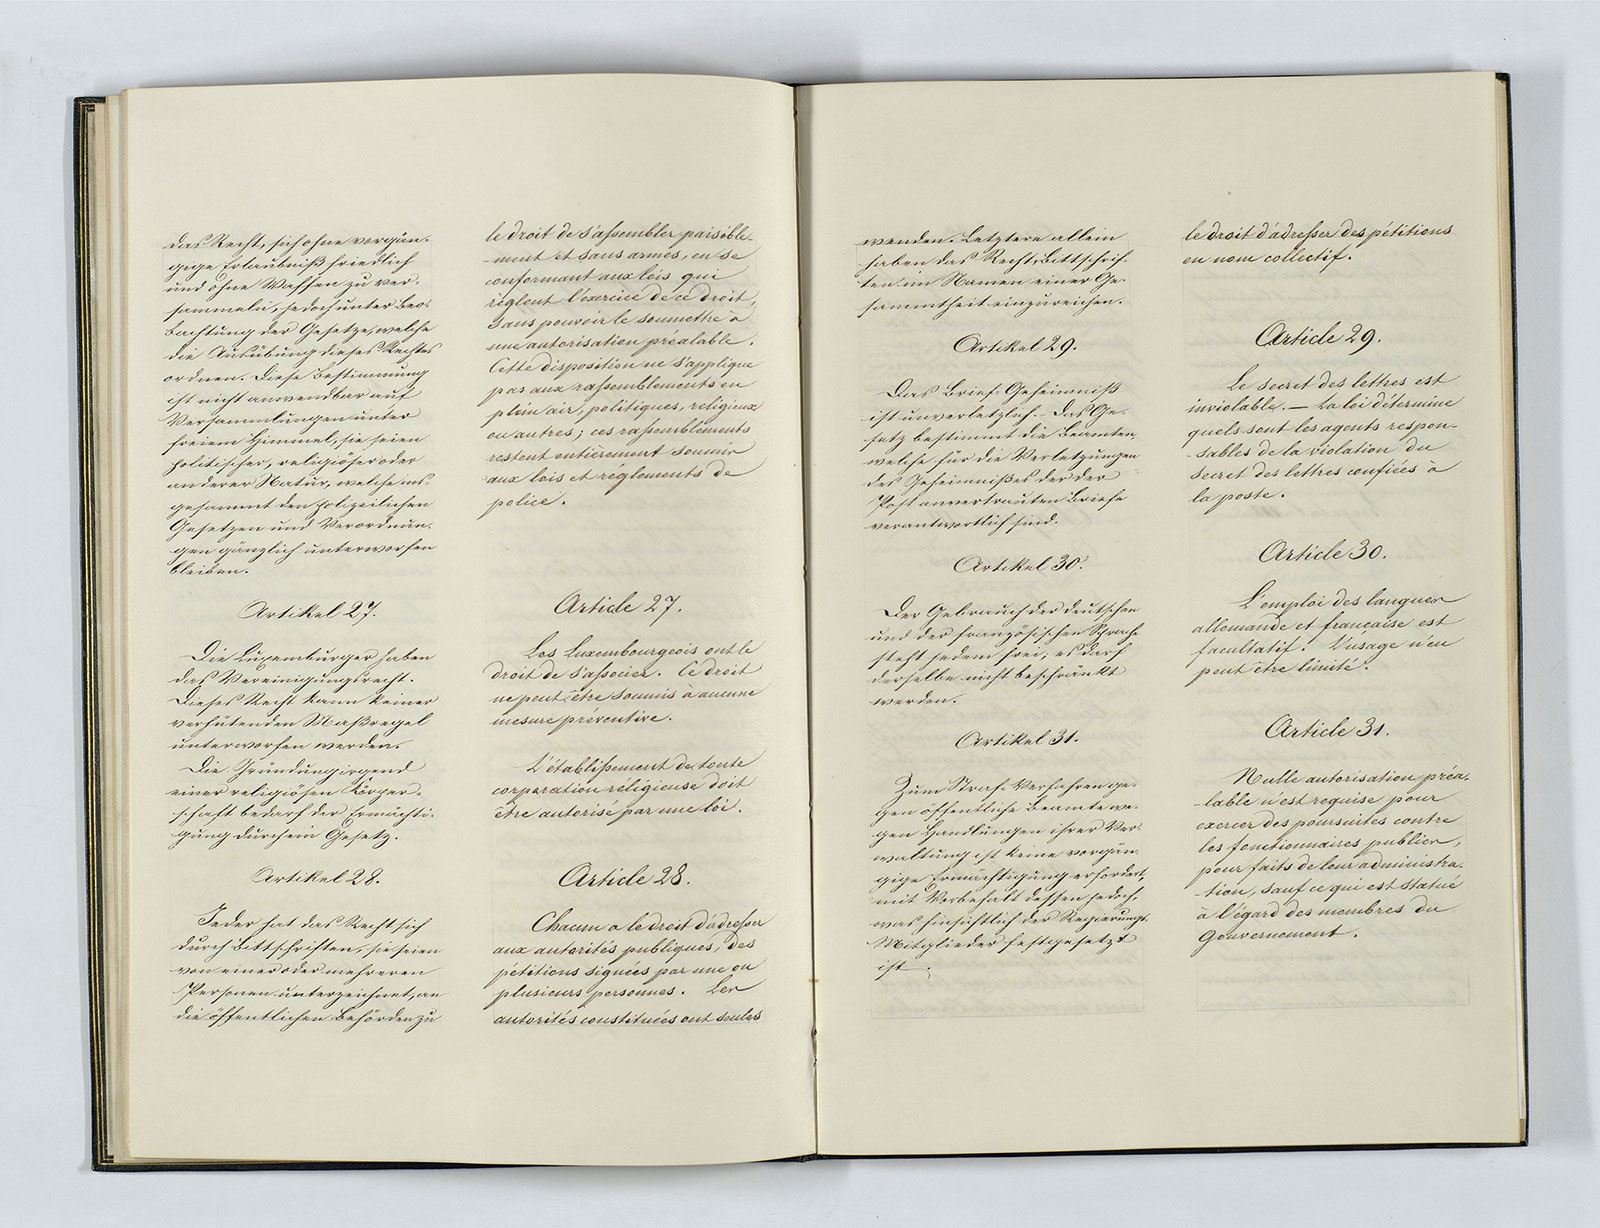 das Recht, sich ohne vorgän-
gige Erlaubniß friedlich
und ohne Waffen zu ver-
sammeln, jedoch unter Beo-
bachtung der Gesetze, welche
die Ausübung dieses Rechtes
ordnen. Diese Bestimmung
ist nicht anwendbar auf
Versammlungen unter
freiem Himmel, sie seien
politischer, religiöser oder
anderer Natur, welche ins-
gesammt den polizeilichen
Gesetzen und Verordnun-
gen gänzlich unterworfen
bleiben.
Artikel 27.
Die Luxemburger haben
das Vereinigungsrecht.
Dieses Recht kann keiner
verhütenden Maßregel
unterworfen werden.
Die Gründung irgend
einer religiösen Körper-
schaft bedarf der Ermächti-
gung durch ein Gesetz.
Artikel 28.
Jeder hat das Recht sich
durch Bittschriften, sie seien
von einer oder mehreren
Personen unterzeichnet, an
die öffentlichen Behörden zu
le droit de s'assembler paisible-
-ment et sans armes, en se
conformant aux lois qui
règlent l'exercice de ce droit,
sans pouvoir le soumettre à
une autorisation préalable.
Cette disposition ne s'applique
pas aux rassemblements en
plein air, politiques, religieux
ou autres; ces rassemblements
restent entièrement soumis
aux lois et réglements de
police.
Article 27.
Les Luxembourgeois ont le
droit de s'associer. Ce droit
ne peut être soumis à aucune
mesure préventive.
L'établissement de toute
corporation réligieuse doit
être autorisé par une loi.
Article 28.
Chacun a le droit d'adresser
aux autorités publiques, des
pétitions signées par une ou
plusieurs personnes. Les
autorités constituées ont seules
wenden. Letztere allein
haben das Recht, Bittschrif-
ten im Namen einer Ge-
sammtheit einzureichen.
Artikel 29.
Das Brief-Geheimniß
ist unverletzlich. – Das Ge-
setz bestimmt die Beamten,
welche für die Verletzungen
des Geheimnißes der der
Post anvertrauten Briefe
verantwortlich sind.
Artikel 30.
Der Gebrauch der deutschen
und der französischen Sprache
steht jedem frei; es darf
derselbe nicht beschränkt
werden.
Artikel 31.
Zum Straf-Verfahren ge-
gen öffentliche Beamte we-
gen Handlungen ihrer Ver-
waltung ist keine vorgän-
gige Ermächtigung erfordert,
mit Vorbehalt dessen jedoch,
was hinsichtlich der Regierungs-
Mitglieder festgesetzt
ist.
le droit d'adresser des pétitions
en nom collectif.
Article 29.
Le secret des lettres est
inviolable. — La loi détermine
quels sont les agents respon-
-sables de la violation du
secret des lettres confiées à
la poste.
Article 30.
L'emploi des langues
allemande et française est
facultatif. L'usage n'en
peut être limité.
Article 31.
Nulle autorisation préa-
-lable n'est requise pour
exercer des poursuites contre
les fonctionnaires publics,
pour faits de leur administra-
-tion, sauf ce qui est statué
à l'égard des membres du
Gouvernement.